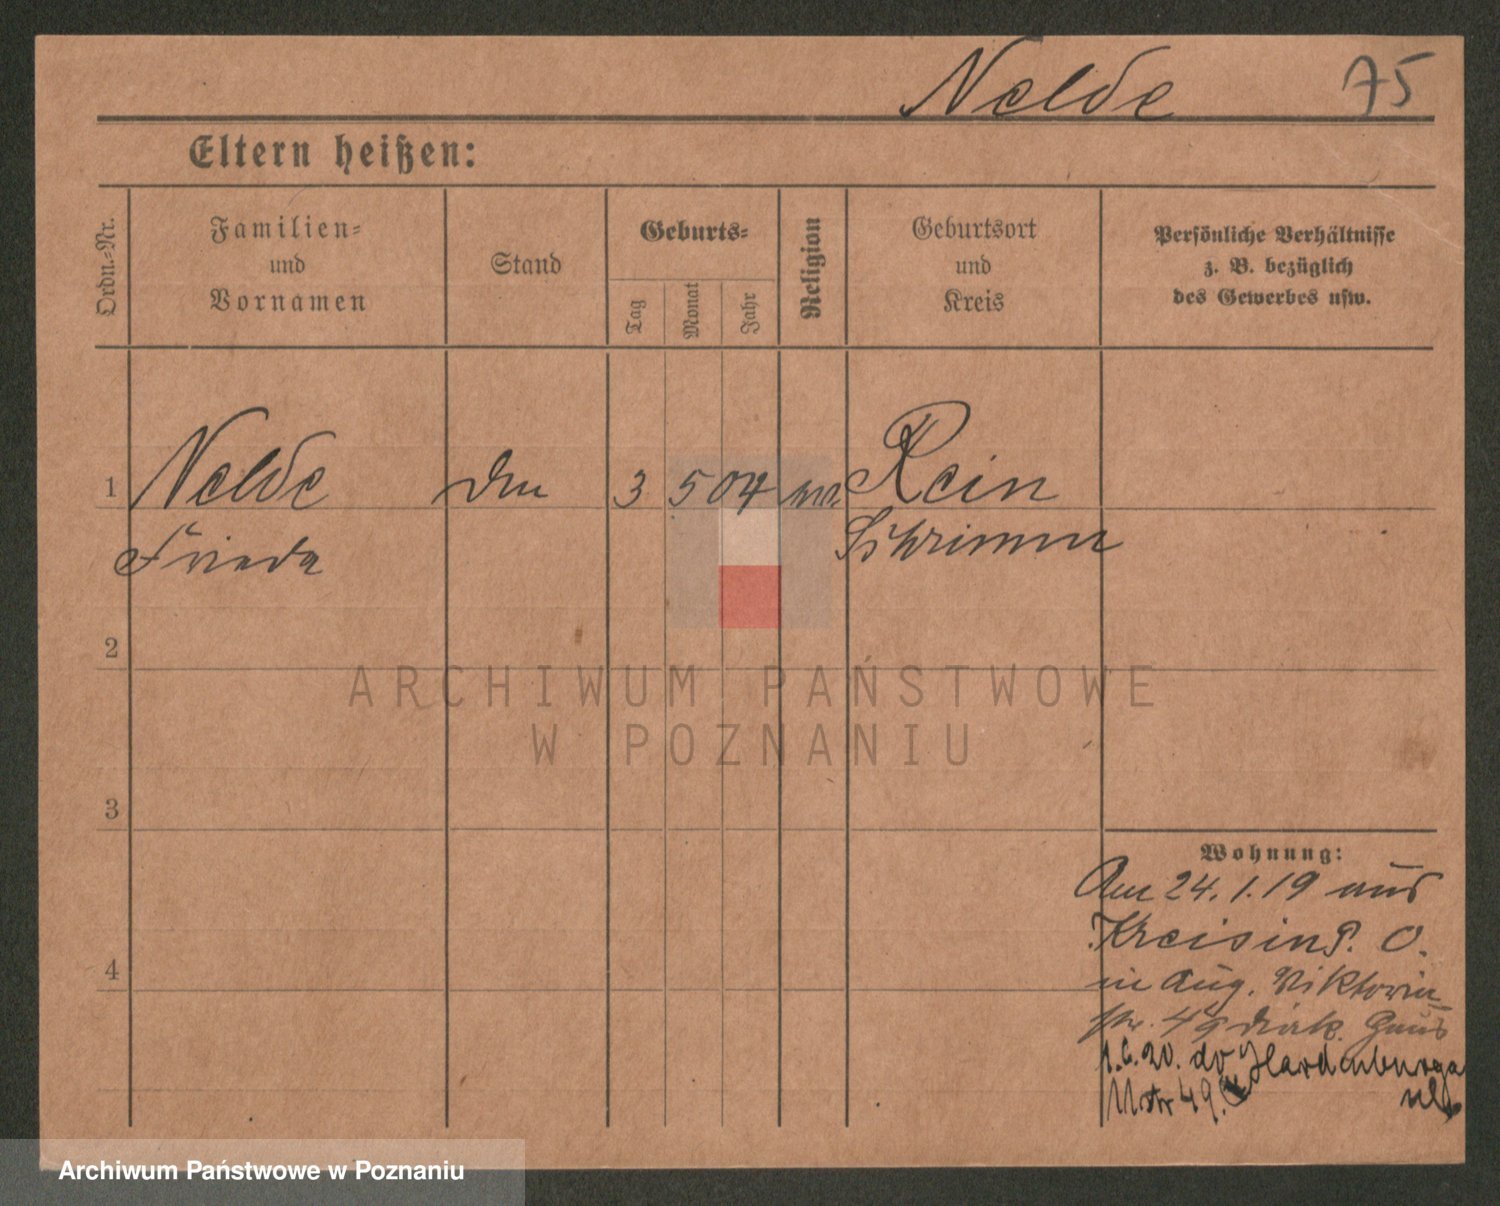 Nelde 75
Eltern heißen:
Ordn.-Nr.
Familien-
und
Vornamen
Stand
Geburts-
Tag
Monat
Jahr
Religion
Geburtsort
und
Kreis
Persönliche Verhältnisse
z. B. bezüglich
des Gewerbes usw.
1 Nelde 3 5 04 Rein
Frieda Schrimm
2
ARCHIWUM PAŃSTWOWE
W POZNANIU
3
Wohnung:
Am 24.1.19 aus
Kreising. O.
4
in Aug. Viktoria
str. 49
1.6.20. do Hardenburga
11 49.
Archiwum Państwowe w Poznaniu